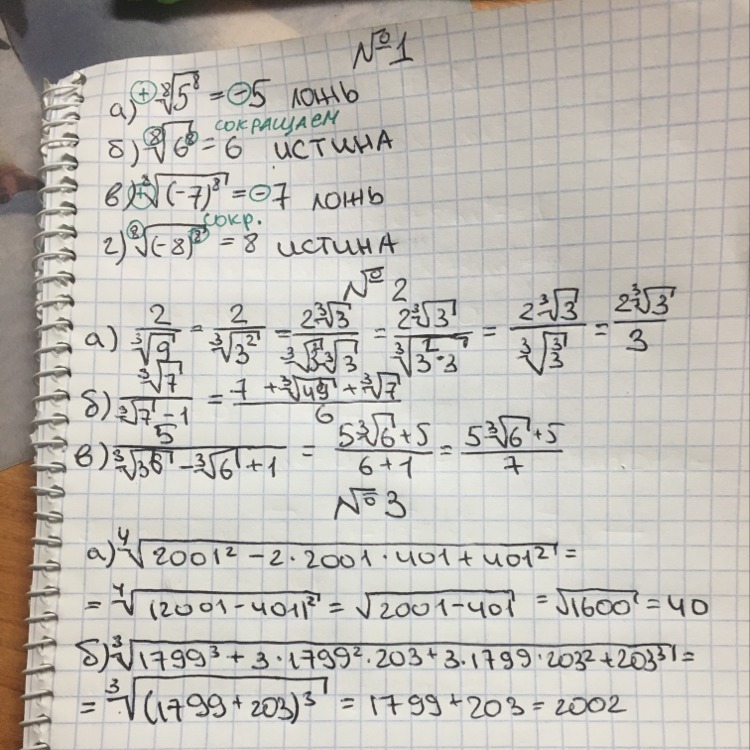 №1
а) ⊕ ⁸√5⁸ = ⊖5 ложь
сокращаем
б) ⁸√6⁸ = 6 истина
в) ⊕ ⁸√(-7)⁸ = ⊖7 ложь
сокр.
г) ⁸√(-8)⁸ = 8 истина
№2
а) 2/∛9 = 2/∛3² = 2∛3/(∛3² ∛3) = 2∛3/∛(3²·3) = 2∛3/∛3³ = 2∛3/3
б) ∛7/(∛7 - 1) = (7 + ∛49 + ∛7)/6
в) 5/(∛36 - ∛6 + 1) = (5∛6 + 5)/(6+1) = (5∛6 + 5)/7
№3
а) ⁴√(2001² - 2·2001·401 + 401²) =
= ⁴√(2001-401)² = √(2001-401) = √1600 = 40
б) ∛(1799³ + 3·1799²·203 + 3·1799·203² + 203³) =
= ∛(1799+203)³ = 1799+203 = 2002